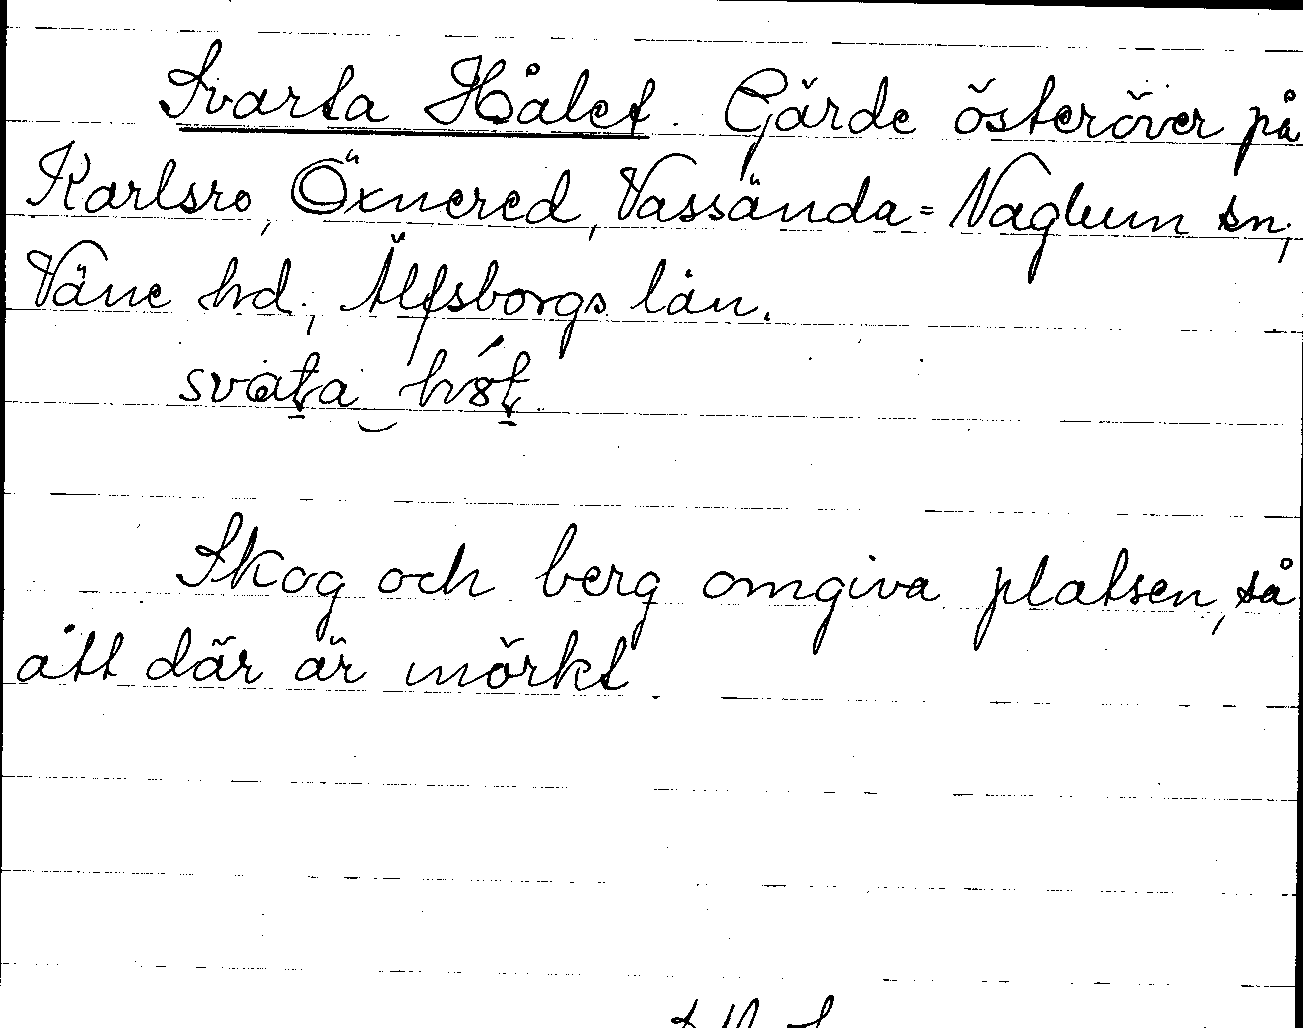 Svarta Hålet. Gärde österöver på
Karlsro, Öxnered, Vassända-Naglum sn,
Väne hd., Älfsborgs län.
Skog och berg omgiva platsen, så
att där är mörkt.